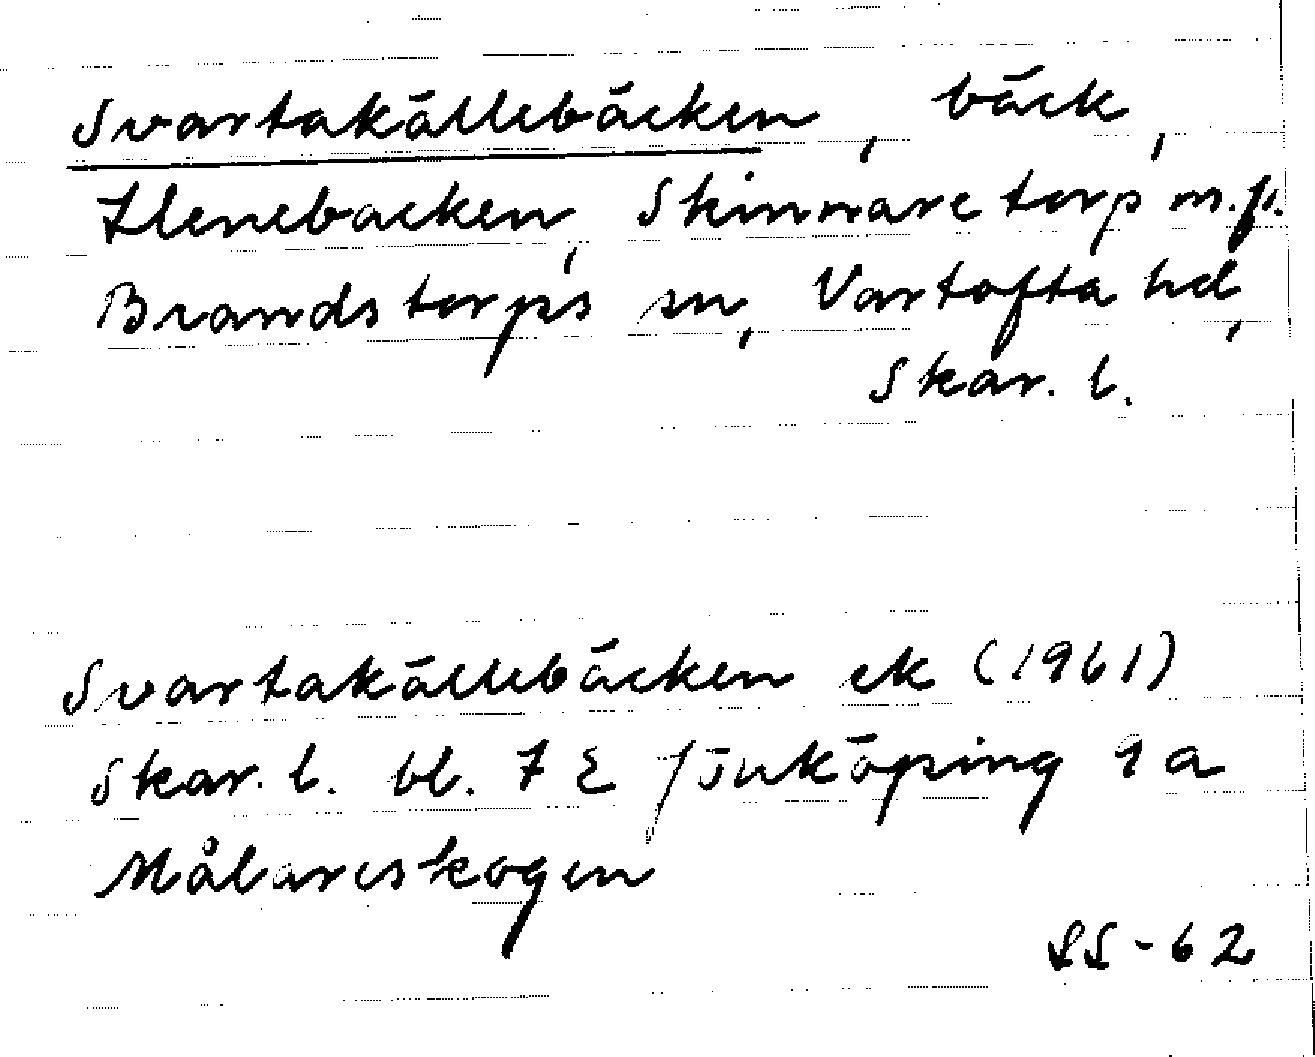 Svartakällebäcken, bäck,
Ilenebacken, Skinnaretorp m.fl.
Brandstorps sn, Vartofta hd,
Skar. l.
Svartakällebäcken ek (1961)
Skar. l. bl. 7 E Jönköping 9 a
Målareskogen
SS-62